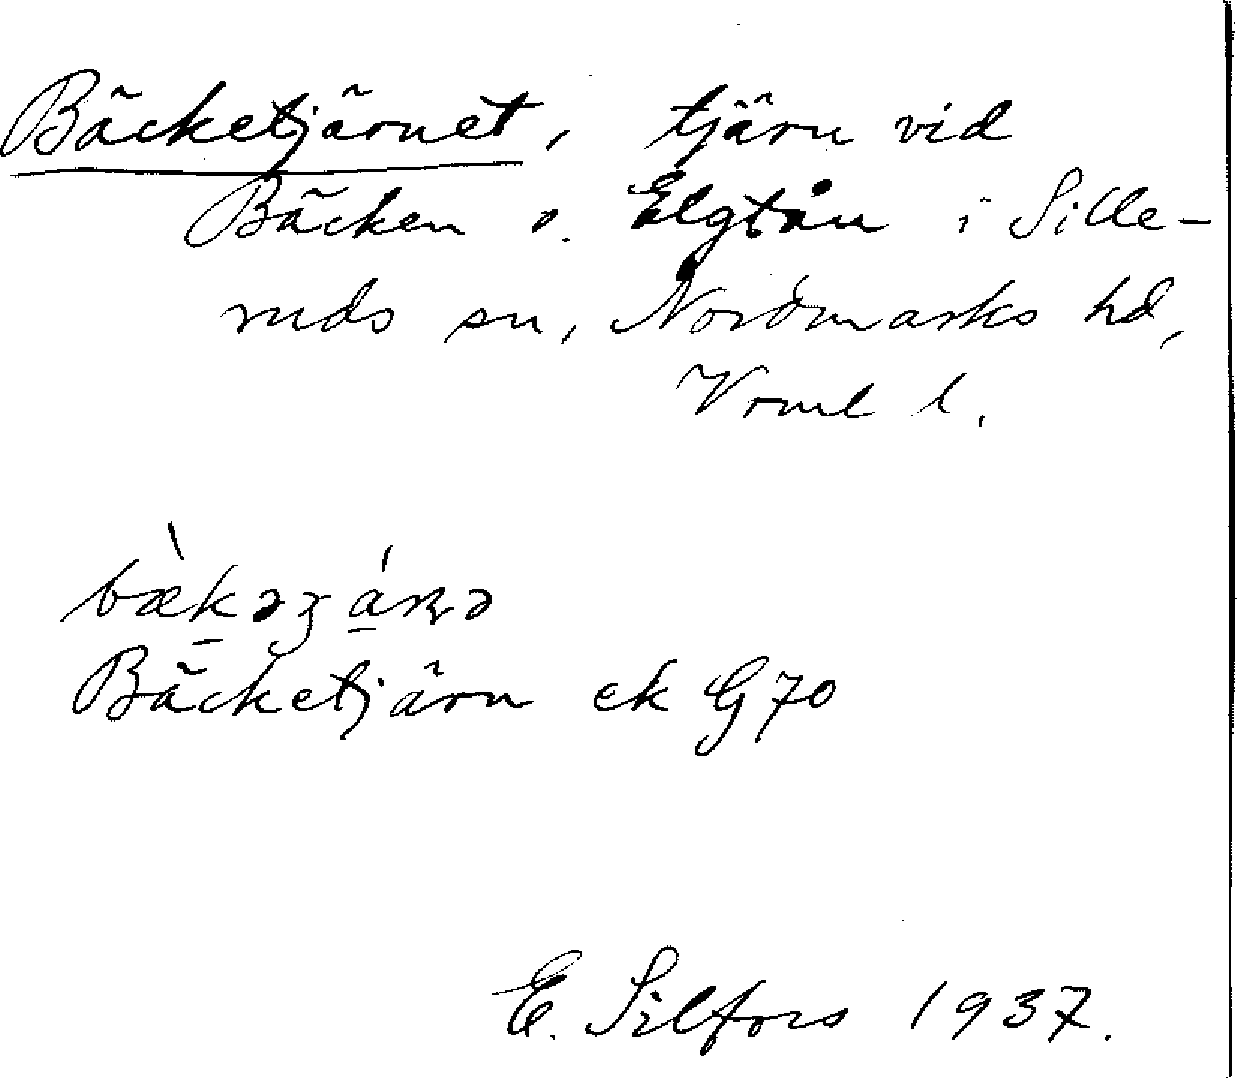 Bäcketjärnet, tjärn vid
Bäcken o. Elgtån i Sille-
ruds sn, Nordmarks hd,
Vrml l.
Bäcketjärn ek G70
E. Silfors 1937.